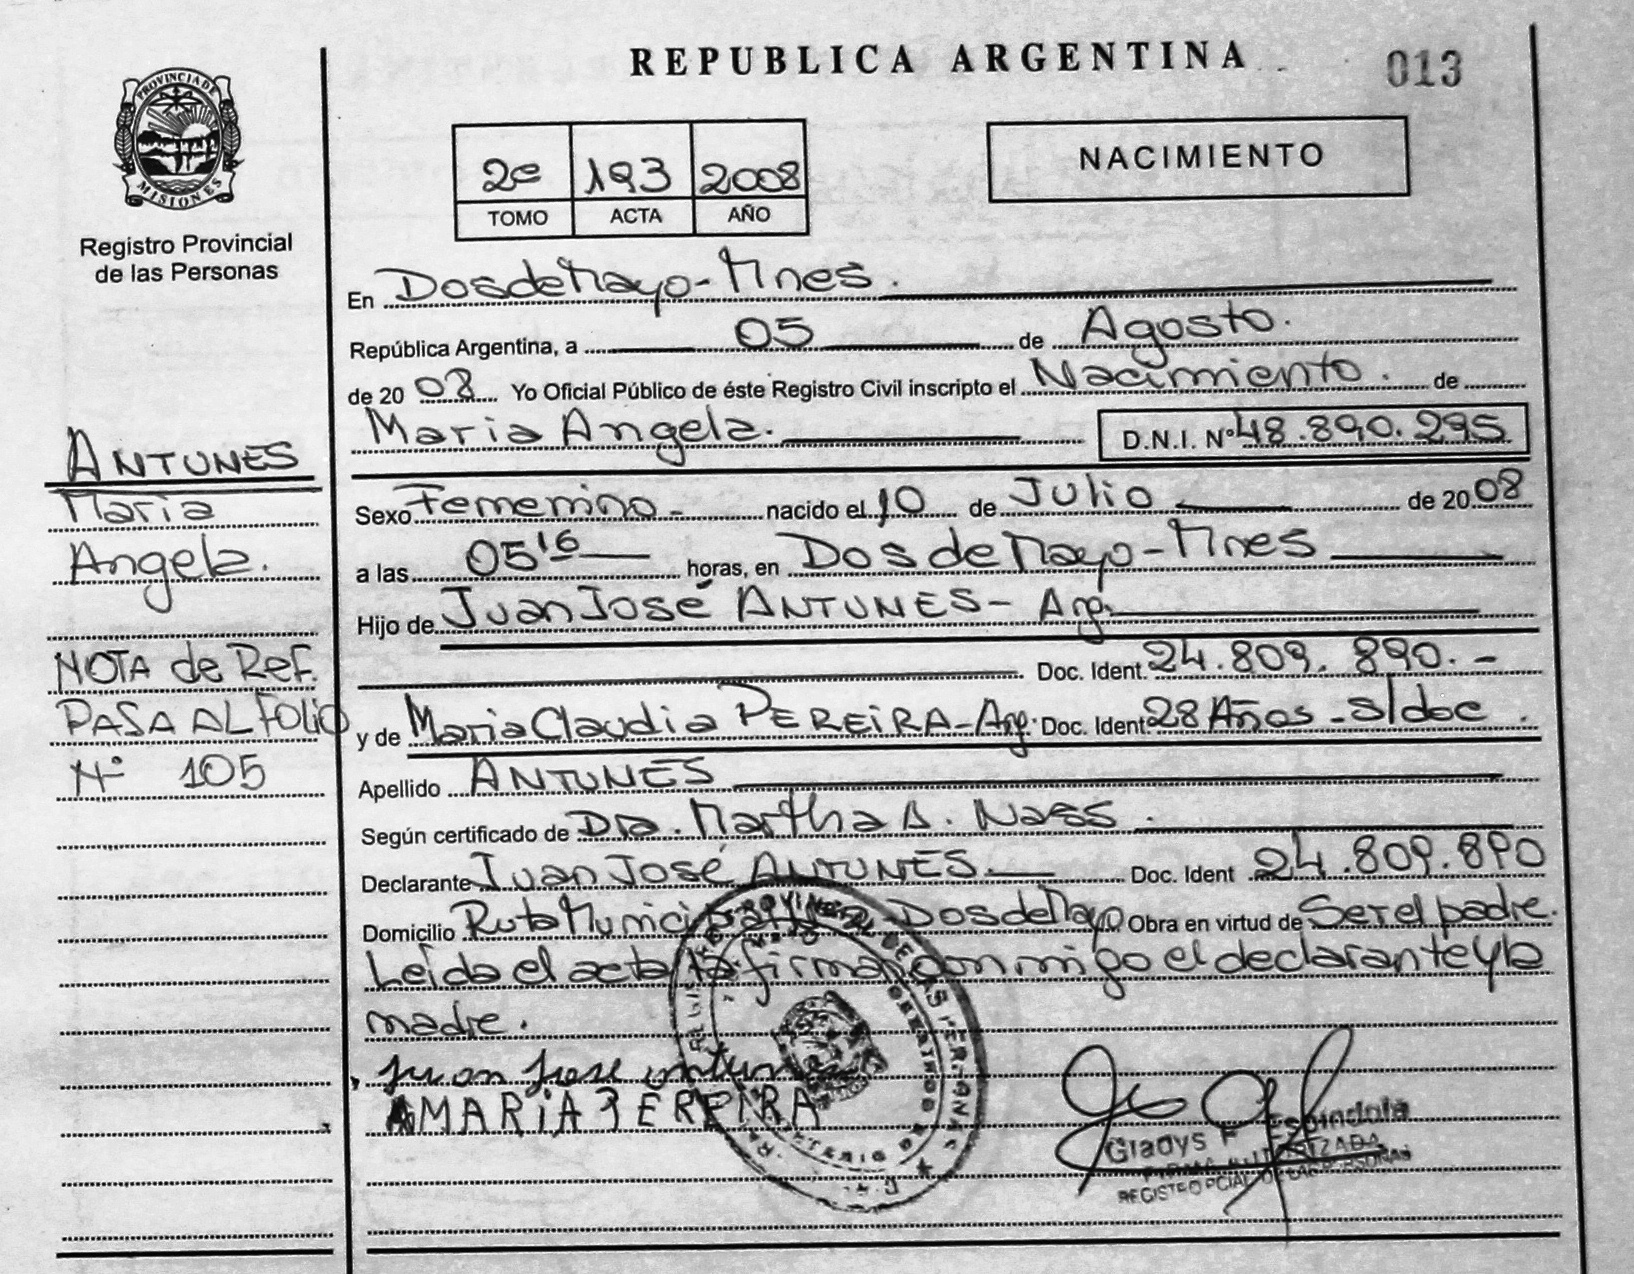 REPUBLICA ARGENTINA
013
PROVINCIA DE
MISIONES
Registro Provincial
de las Personas
2e 193 2008
TOMO ACTA AÑO
NACIMIENTO
En Dos de Mayo - Mnes.
República Argentina, a 05 de Agosto.
de 20 08 Yo Oficial Público de éste Registro Civil inscripto el Nacimiento. de
Maria Angela. D.N.I. Nº 48.890.295
Sexo Femenino - nacido el 10 de Julio de 20 08
a las 05 16 horas, en Dos de Mayo - Mnes
Hijo de Juan José ANTUNES - Arg.
Doc. Ident. 24.809.890.-
y de Maria Claudia PEREIRA - Arg. Doc. Ident 28 Años - s/doc.
Apellido ANTUNES
Según certificado de Dra. Martha A. Nass.
Declarante Juan José ANTUNES Doc. Ident 24.809.890
Domicilio Ruta Municipal Dos de Mayo Obra en virtud de Ser el padre.
Leída el acta la firman conmigo el declarante y la
madre.
Juan Jose antunes
MARiA PEREIRA
Gladys F. Espindola
FIRMA AUTORIZADA
REGISTRO PCIAL. DE LAS PERSONAS
ANTUNES
Maria
Angela.
NOTA de Ref.
PASA AL Folio
Nº 105